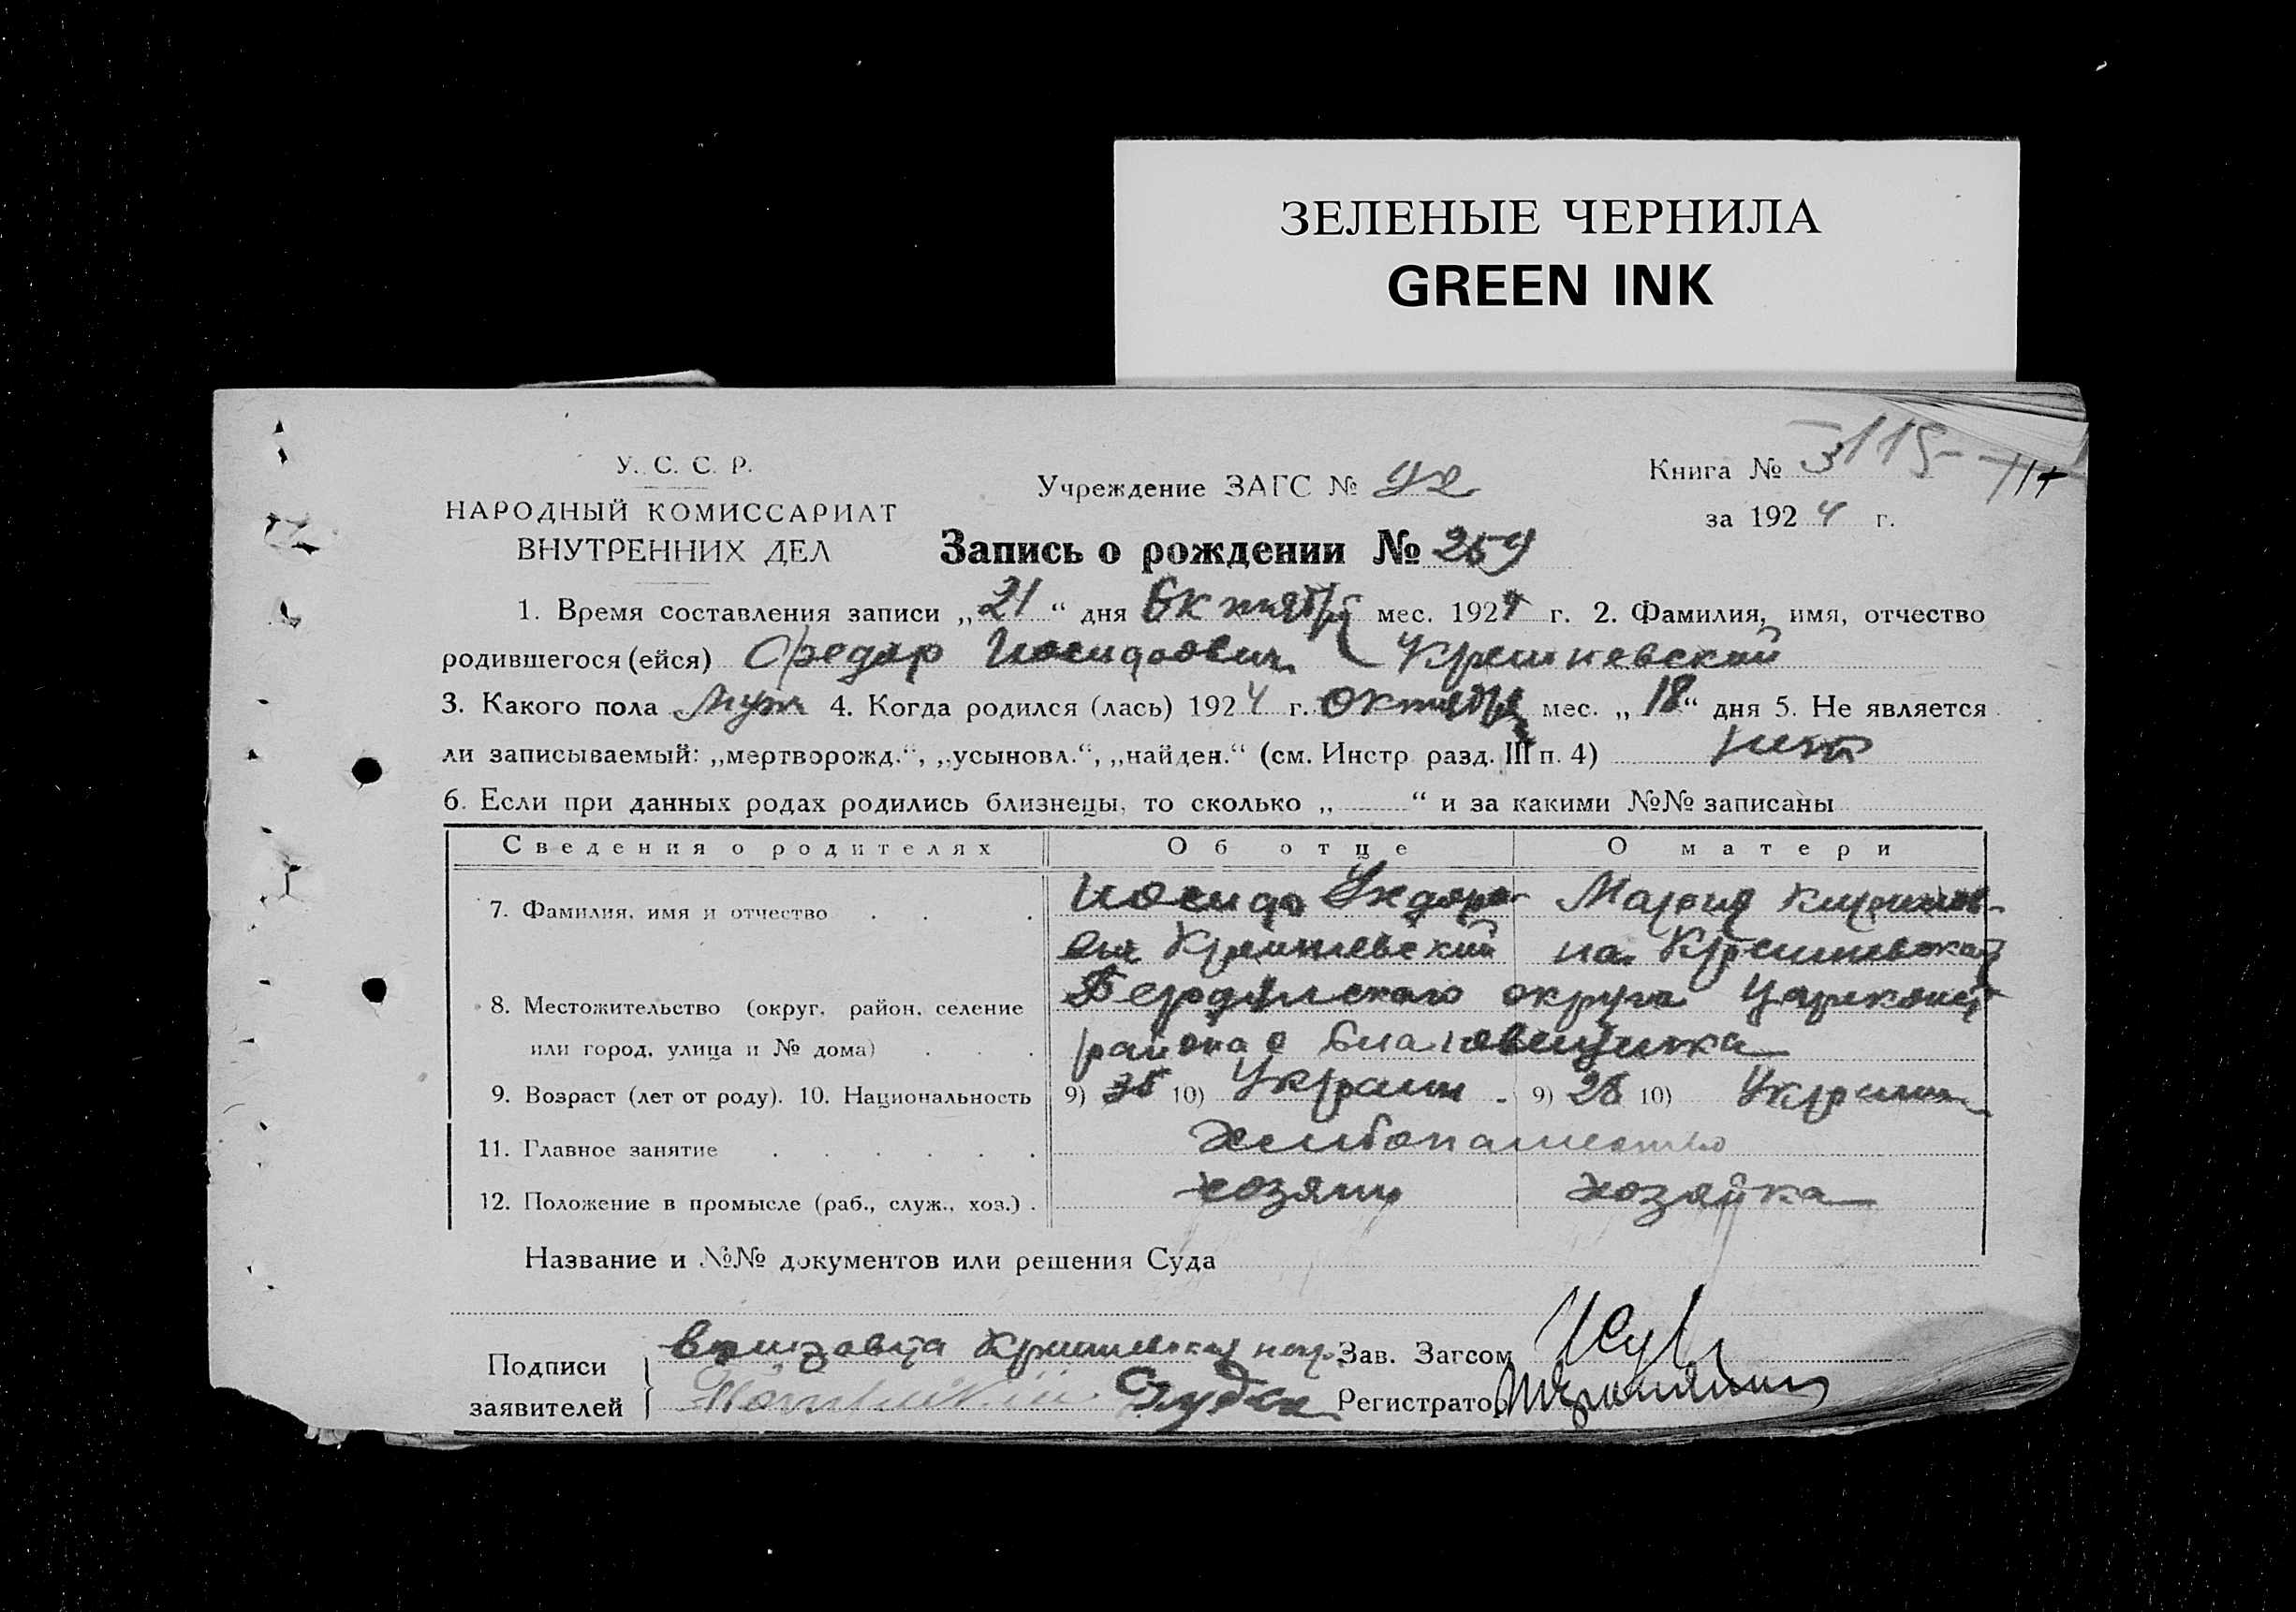 ЗЕЛЕНЫЕ ЧЕРНИЛА
GREEN INK
У. С. С. Р.
НАРОДНЫЙ КОМИССАРИАТ
ВНУТРЕННИХ ДЕЛ
Учреждение ЗАГС №
Книга №
за 1924 г.
Запись о рождении № 259
1. Время составления записи „21“ дня Октября мес. 1924 г. 2. Фамилия, имя, отчество
родившегося (ейся) Федор Иосифович
3. Какого пола муж 4. Когда родился (лась) 1924 г. октября мес. „18“ дня 5. Не является
ли записываемый: „мертворожд.“, „усыновл.“, „найден.“ (см. Инстр. разд. III п. 4) нет
6. Если при данных родах родились близнецы, то сколько „ “ и за какими №№ записаны
Сведения о родителях Об отце О матери
7. Фамилия, имя и отчество Иосиф Мария
8. Местожительство (округ, район, селение округа
или город, улица и № дома) района с
9. Возраст (лет от роду). 10. Национальность 9) 10) Украин 9) 26 10) Украин
11. Главное занятие Хлебопашество
12. Положение в промысле (раб., служ., хоз.) хозяин хозяйка
Название и №№ документов или решения Суда
Подписи
заявителей
Зав. Загсом
Регистратор